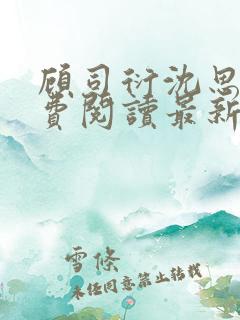 顾司衍沈思
費閱讀最新
雪條
未经同意禁止转载